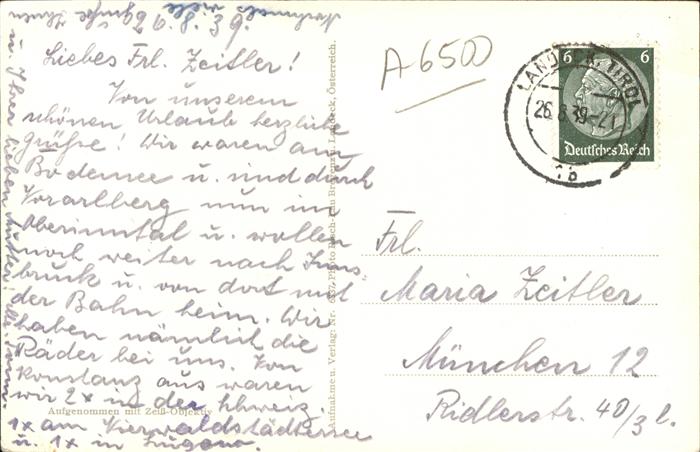 26.8.39.
Liebes Frl. Zeitler!
Von unserem
schönen Urlaub herzliche
Grüße! Wir waren am
Bodensee u. sind durch
Vorarlberg nun im
Oberinntal u. wollen
noch weiter nach Inns-
bruck u. von dort mit
der Bahn heim. Wir
haben nämlich die
Räder bei uns. Von
Konstanz aus waren
wir 2x in der Schweiz.
1x am Vierwaldstädtersee
u. 1x in Lugano.
Nochmals viele
Grüße Ihnen
u. Ihrer lieben Mutter!
Aufgenommen mit Zeiß-Objektiv
Aufnahme u. Verlag: Nr. Photo Landeck, Österreich.
A6500
6 6
Deutsches Reich
LANDECK, TIROL
26.8.39
b
Frl.
Maria Zeitler
München 12
Ridlerstr. 40/3 l.